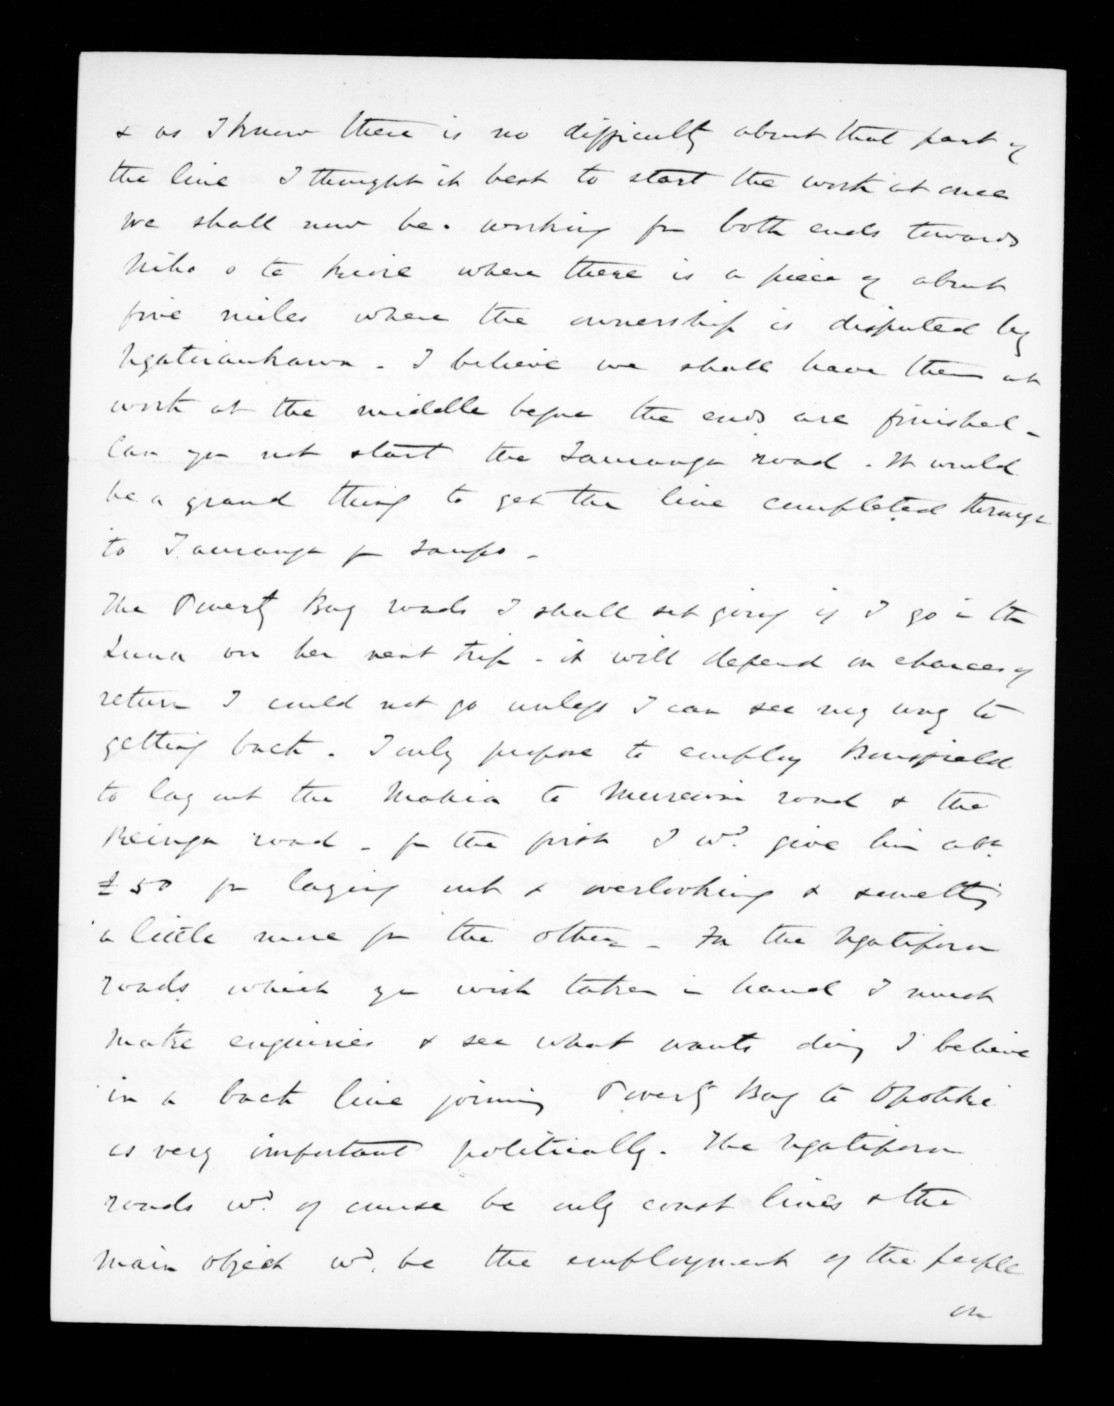 & as I know there is no difficulty about that part of
the line I thought it best to start the work at once
we shall now be working fm both ends towards
Niho o te Kiore where there is a piece of about
five miles where the ownership is disputed by
Ngatiraukawa - I believe we shall have them at
work at the middle before the ends are finished -
Can you not start the Tauranga road. It would
be a grand thing to get the line completed through
to Tauranga fm Taupo -
The Poverty Bay roads I shall set going if I go in the
Luna on her next trip - it will depend on chances of
return I could not go unless I can see my way to
getting back. I only propose to employ Bousfield
to lay out the Mahia to road & the
Reinga road - for the first I wd. give him abt.
£50 for laying out & overlooking & something
a little more for the other - For the Ngatiporou
roads which you wish taken in hand I must
make enquiries & see what wants doing I believe
in a back line joining Poverty Bay to Opotiki
is very important politically. The Ngatiporou
roads wd. of course be only coast lines & the
main object wd. be the employment of the people
on